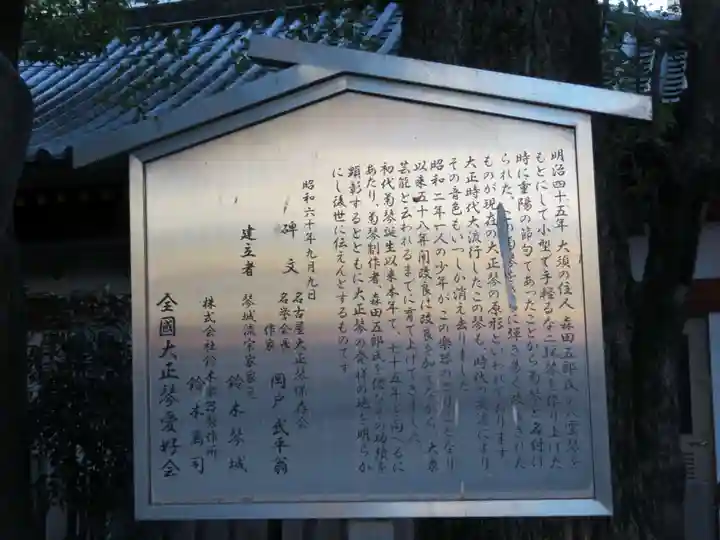 明治四十五年 大須の住人 森田五郎氏が八雲琴を
もとにして小型で手軽るな二絃琴を作り上げた
時に重陽の節句であったことから菊琴と名付け
られた、この菊琴 に弾き易く改良された
ものが現在の大正琴の原形といわれております
大正時代大流行したこの琴も、時代の変遷により
その音色もいつしか消え去りました
昭和二年一人の少年がこの楽器のとりことなり
以来五十八年間改良に改良を加えながら、大衆
芸能と云われるまでに育て上げてきました。
初代菊琴誕生以来本年で、七十五年を向へるに
あたり、菊琴制作者、森田五郎氏を偲びその功績を
顕彰するとともに大正琴の発祥の地を明らか
にし後世に伝えんとするものです
昭和六十年九月九日
碑文 名古屋大正琴保存会
名誉会長 作家 岡戸武平翁
建立者 琴城流宗家家元 鈴木琴城
株式会社鈴木楽器製作所 鈴木萬司
全國大正琴愛好会